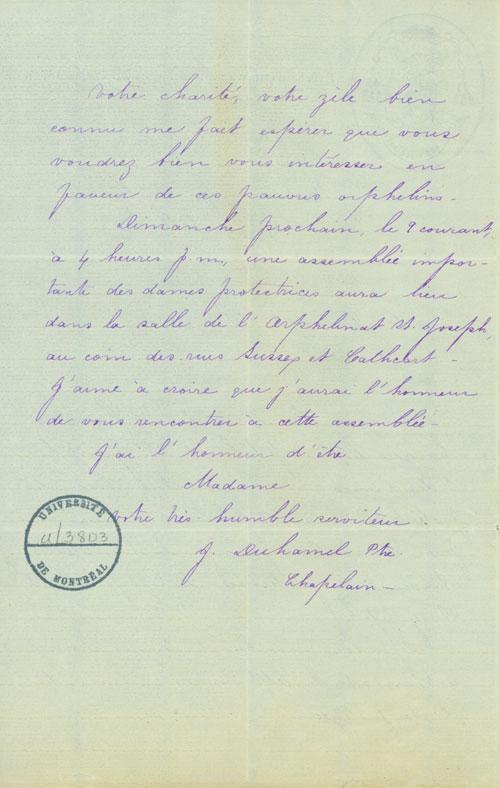 Votre charité, votre zèle bien
connu me fait espérer que vous
voudrez bien vous intéresser en
faveur de ces pauvres orphelins.
Dimanche prochain, le 9 courant,
à 4 heures p.m., une assemblée impor-
tante des dames protectrices aura lieu
dans la salle de l'Orphelinat St. Joseph,
au coin des rues Sussex et Cathcart.
J'aime à croire que j'aurai l'honneur
de vous rencontrer à cette assemblée.
J'ai l'honneur d'être
Madame
Votre très humble serviteur.
J. Duhamel Ptre.
Chapelain
UNIVERSITÉ
u/3803
DE MONTRÉAL